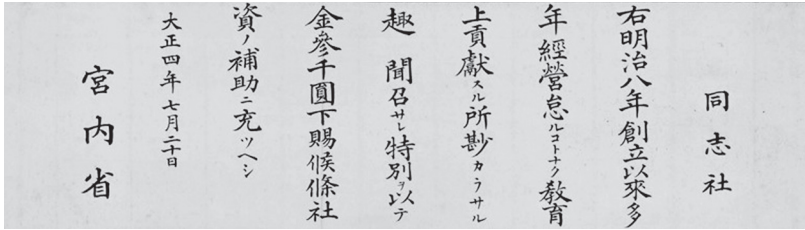 同志社
右明治八年創立以來多
年經營怠ルコトナク教育
上貢獻スル所尠カラサル
趣　聞召サレ特別ヲ以テ
金參千圓下賜候條社
資ノ補助ニ充ツヘシ
大正四年七月二十日
宮内省